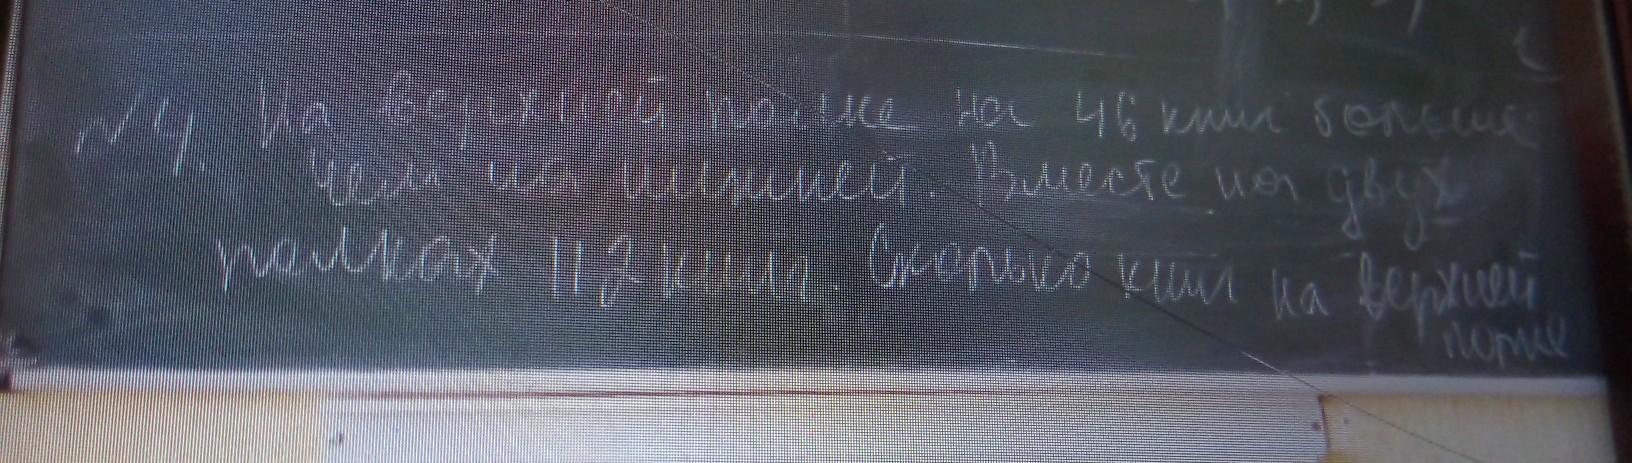 N4. На верхней полке на 46 книг больше
чем на нижней. Вместе на двух
полках 112 книг. Сколько книг на верхней
полке